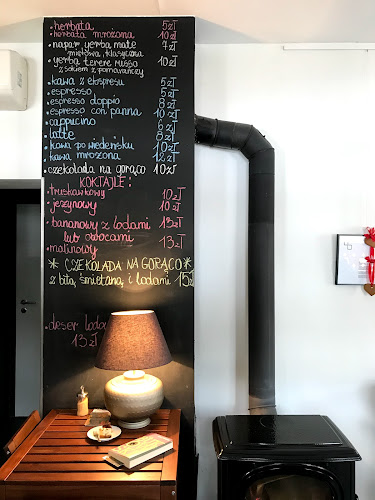 • herbata 5zł
• herbata mrożona 10zł
• napar yerba mate 7zł
miętowa, klasyczna
• yerba terere russo 10zł
z sokiem z pomarańczy
• kawa z ekspresu 5zł
• espresso 5zł
• espresso doppio 8zł
• espresso con panna 10zł
• cappucino 6zł
• latte 8zł
• kawa po wiedeńsku 10zł
• kawa mrożona 12zł
• czekolada na gorąco 10zł
KOKTAJLE:
• truskawkowy 10zł
• jeżynowy 10zł
• bananowy z lodami 13zł
lub owocami
• malinowy 13zł
* CZEKOLADA NA GORĄCO *
z bitą śmietaną i lodami 15zł
• deser lodo
13zł